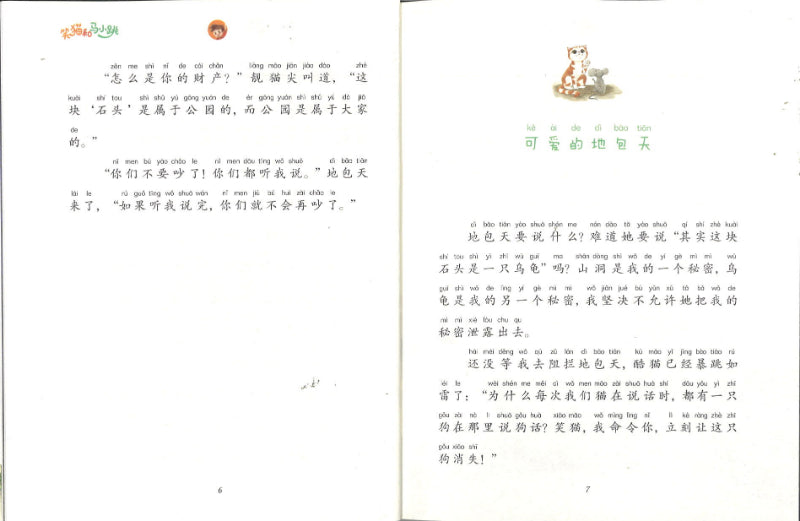 笑猫和马小跳
zěn me shì nǐ de cái chǎn liàng māo jiān jiào dào zhè
“怎么是你的财产？”靓猫尖叫道，“这
kuài shí tou shì shǔ yú gōng yuán de ér gōng yuán shì shǔ yú dà jiā
块‘石头’是属于公园的，而公园是属于大家
de
的。”
nǐ men bú yào chǎo le nǐ men dōu tīng wǒ shuō dì bāo tiān
“你们不要吵了！你们都听我说。”地包天
lái le rú guǒ tīng wǒ shuō wán nǐ men jiù bú huì zài chǎo le
来了，“如果听我说完，你们就不会再吵了。”
6
kě ài de dì bāo tiān
可爱的地包天
dì bāo tiān yào shuō shén me nán dào tā yào shuō qí shí zhè kuài
地包天要说什么？难道她要说“其实这块
shí tou shì yì zhī wū guī ma shān dòng shì wǒ de yí gè mì mì wū
石头是一只乌龟”吗？山洞是我的一个秘密，乌
guī shì wǒ de lìng yí gè mì mì wǒ jiān jué bù yǔn xǔ tā bǎ wǒ de
龟是我的另一个秘密，我坚决不允许她把我的
mì mì xiè lòu chu qu
秘密泄露出去。
hái méi děng wǒ qù zǔ lán dì bāo tiān kù māo yǐ jīng bào tiào rú
还没等我去阻拦地包天，酷猫已经暴跳如
léi le wèi shén me měi cì wǒ men māo zài shuō huà shí dōu yǒu yì zhī
雷了：“为什么每次我们猫在说话时，都有一只
gǒu zài nà lǐ shuō gǒu huà xiào māo wǒ mìng lìng nǐ lì kè ràng zhè zhī
狗在那里说狗话？笑猫，我命令你，立刻让这只
gǒu xiāo shī
狗消失！”
7